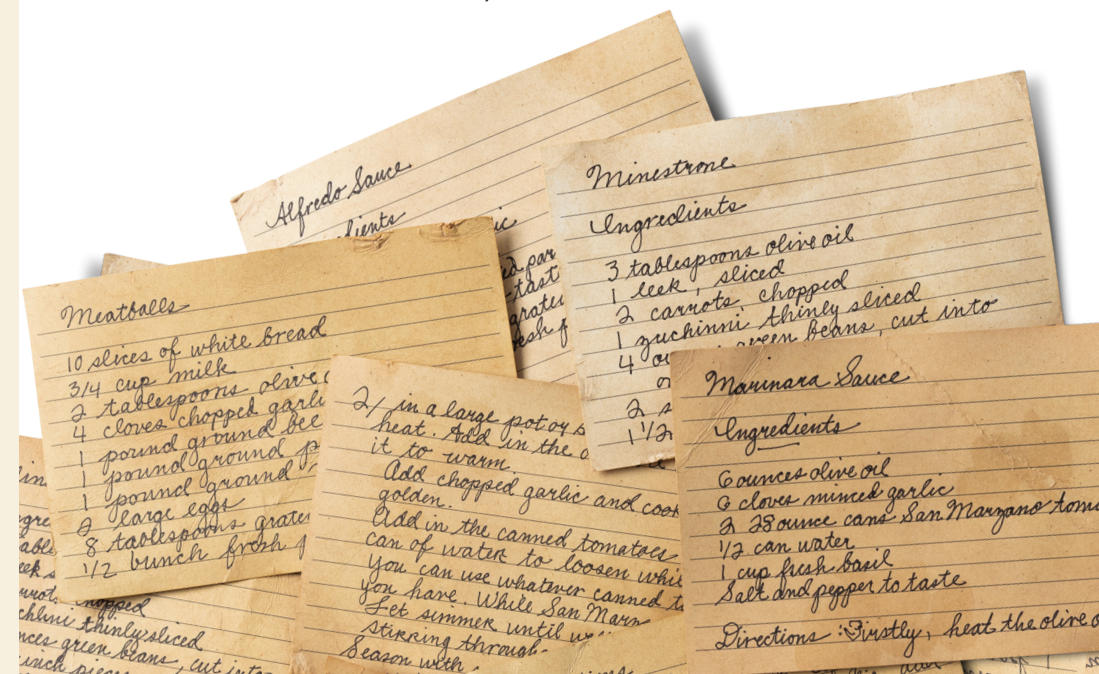 Alfredo Sauce
Minestrone
Ingredients
3 tablespoons olive oil
1 leek, sliced
2 carrots, chopped
1 zuchinni thinly sliced
4 green beans, cut into
2
1 1/2
Meatballs
10 slices of white bread
3/4 cup milk
2 tablespoons olive
4 cloves chopped garli
1 pound ground bee
1 pound ground p
1 pound ground
2 large eggs
8 tablespoons grate
1/2 bunch fresh
2/ in a large pot
heat. Add in the
it to warm.
Add chopped garlic and cook
golden.
Add in the canned tomatoes
can of water to loosen
You can use whatever canned
you have. While San Marz
Let simmer until
stirring through
Season with
Marinara Sauce
Ingredients
6 ounces olive oil
6 cloves minced garlic
2 28 ounce cans San Marzano tom
1/2 can water
1 cup fresh basil
Salt and pepper to taste
Directions : Firstly, heat the olive
chopped
thinly sliced
green beans, cut into